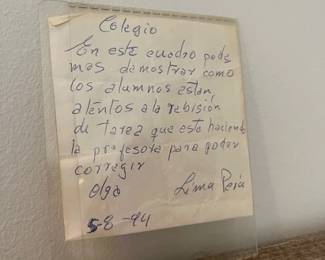 Colegio
En este cuadro pode
mos démostrar como
los alumnos estan
aténtos a la rebisión
de tarea que este haciendo
la profesora para poder
corregir
Olga Lima Perú
5-8-94